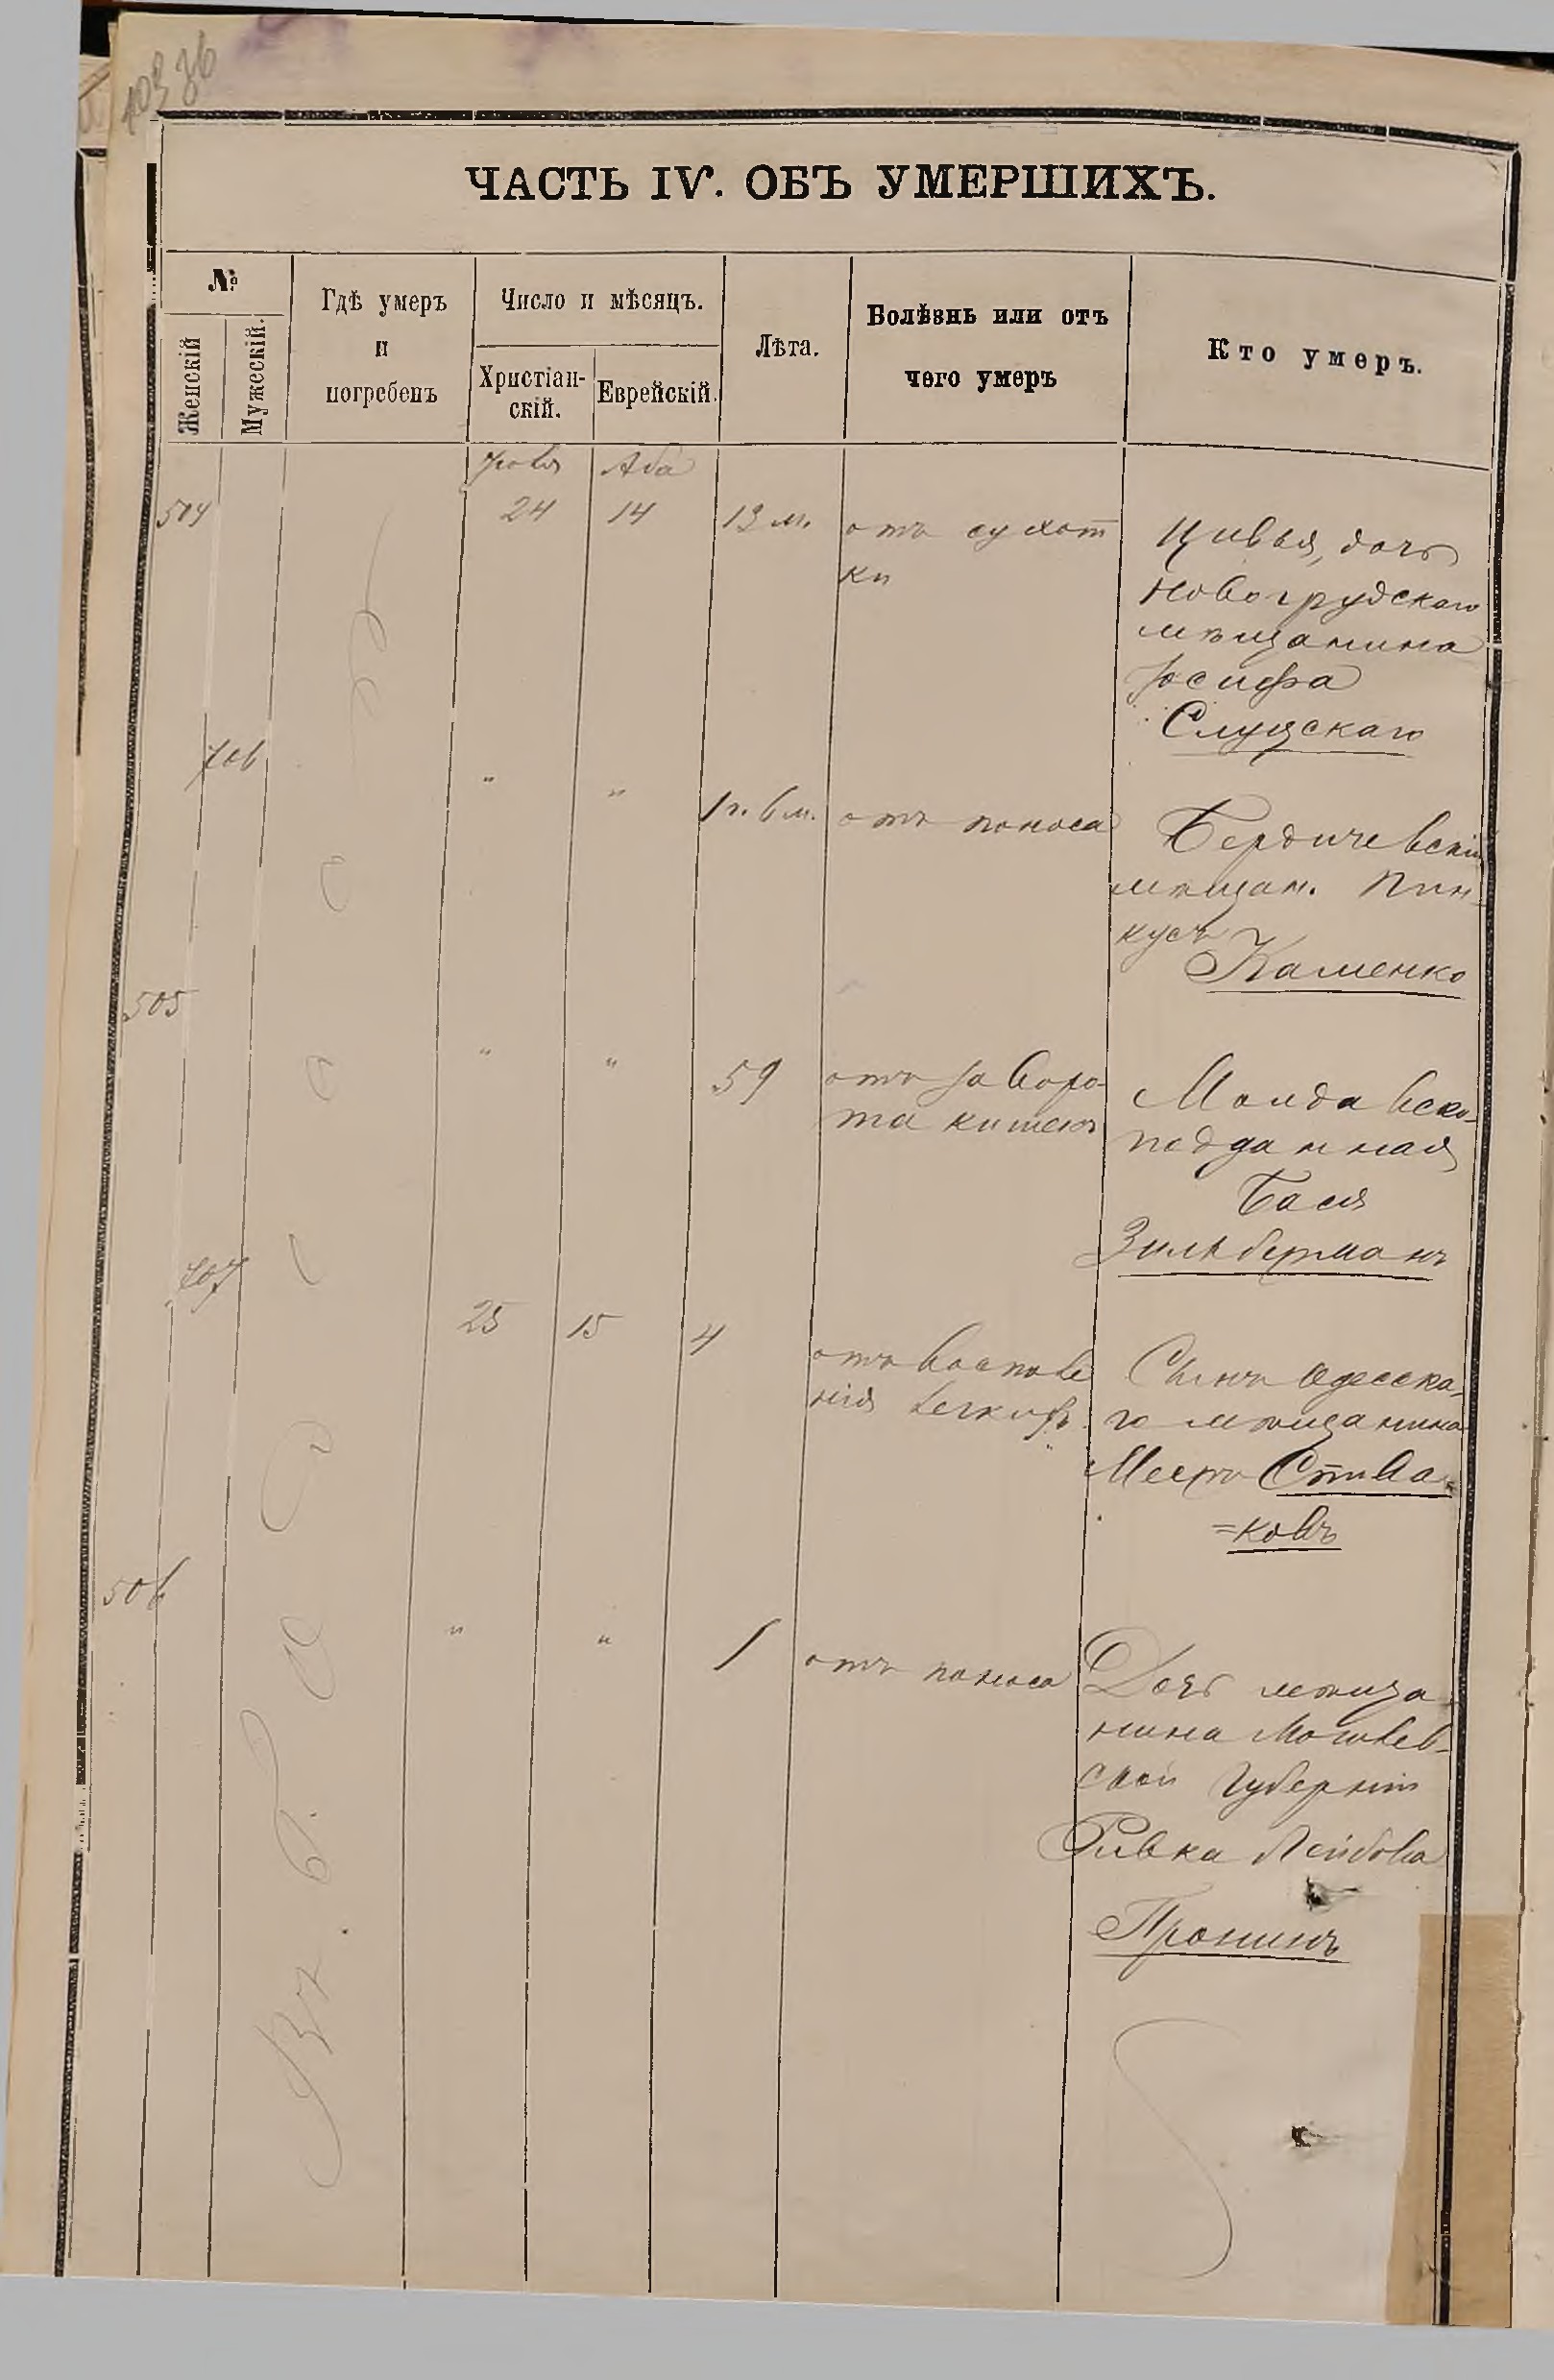 ЧАСТЬ IV. ОБЪ УМЕРШИХЪ.
№
Женскій
Мужескій.
Гдѣ умеръ
и
погребенъ
Число и мѣсяцъ.
Христіан-
скій.
Еврейскій.
Лѣта.
Болѣзнь или отъ
чего умеръ
Кто умеръ.
Іюля Аба
504 24 14 13 м. отъ сухот
ки
Цивья, дочь
Новогрудскаго
мѣщанина
Іосифа
Слуцскаго
706 " " 1 г. 6 м. отъ поноса
Бердичевскій
мѣщан. Пин-
кусъ
Каменко
505 " " 59 отъ заворо-
та кишекъ
Молдавско-
подданная
Бася
Зильберманъ
707 25 15 4 отъ воспале
нія легкихъ
Сынъ Одесска-
го мѣщанина
Мееръ Спива-
=ковъ
506 " " 1 отъ поноса
Дочь мѣща
нина Могилев-
ской Губерніи
Ривка Лейбова
Пронинъ
Въ г. Одессѣ